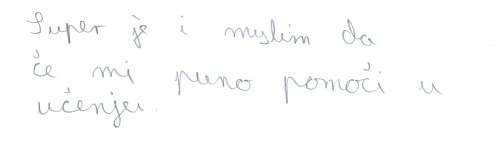 Super je i myslim da
će mi puno pomoći u
učenjei.